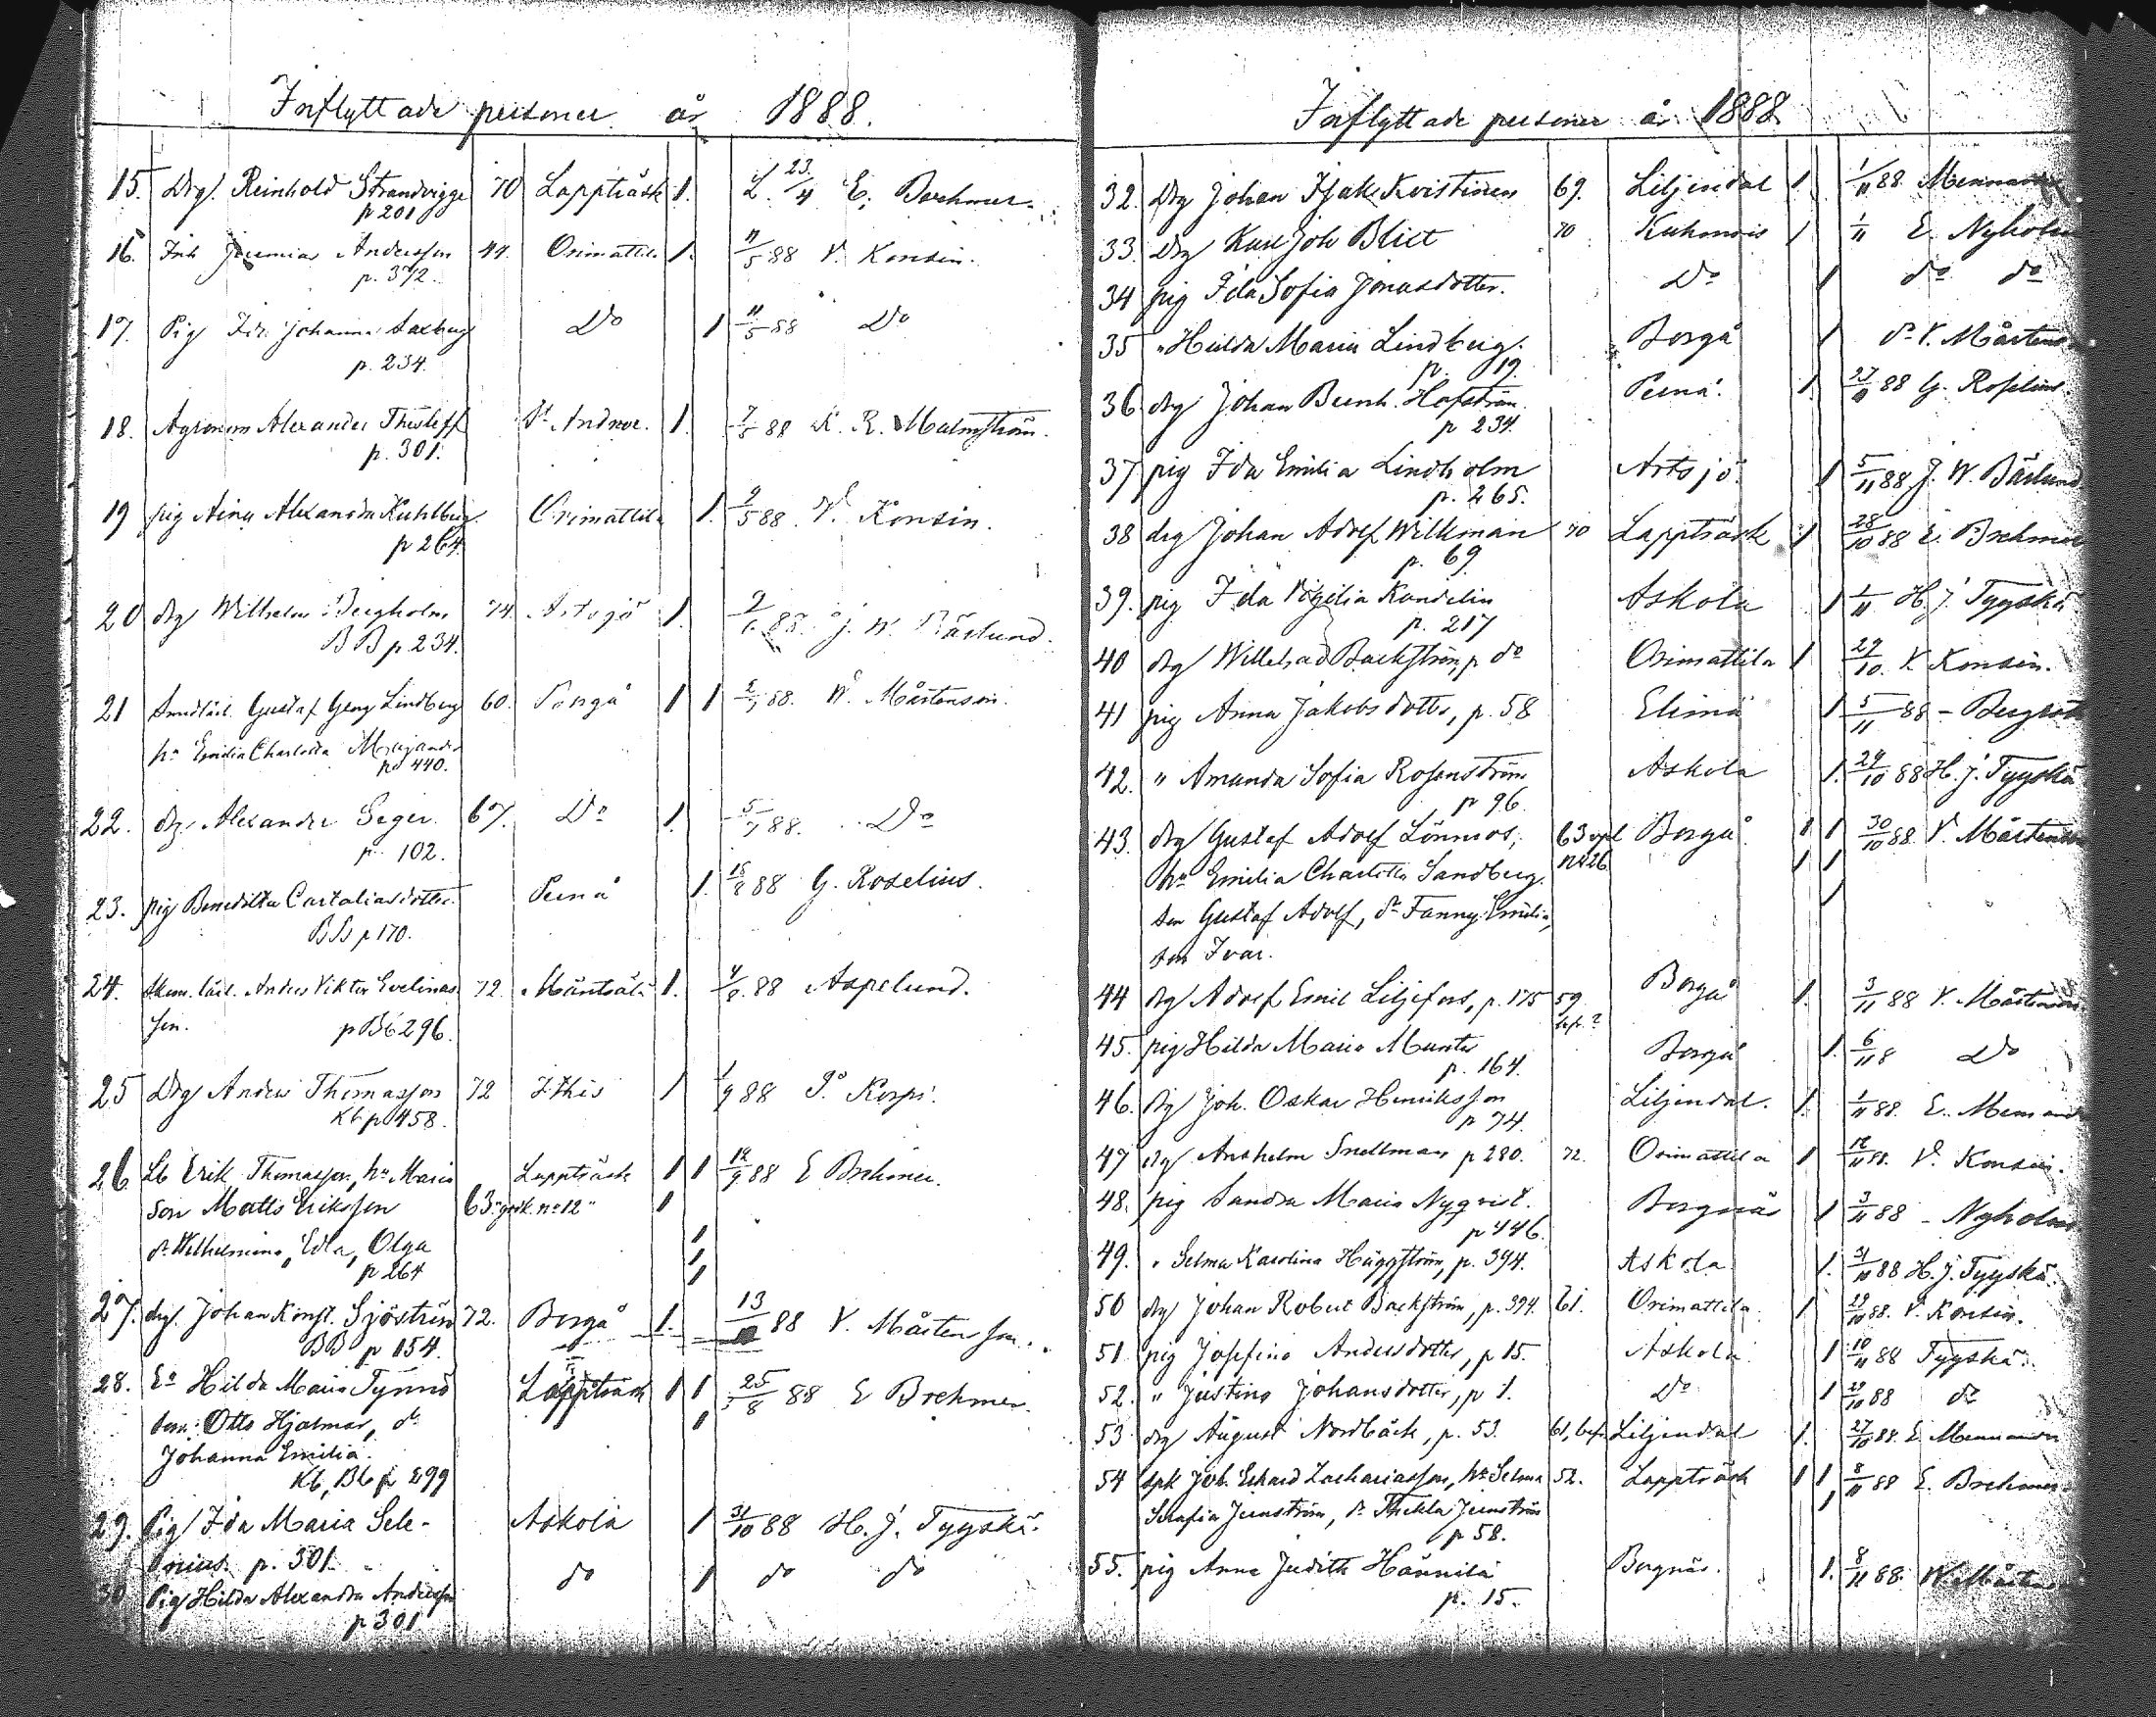 Inflyttade personer år 1888.
15. Drg. Reinhold Strandvigge 70 Lappträsk 1. L. 23/4 E. Brehmer.
p 201
16. Inh Jeremias Andersson 44. Orimattila 1. 11/5 88 V. Konsin.
p. 372.
17. Pig Ida Johanna Saxberg Do 1 11/5 88 Do
p. 234.
18. Agronom Alexander Thesleff St Andreæ. 1. 7/5 88 K. R. Malmström.
p. 301.
19 pig Aina Alexandra Kuhlberg Orimattila 1. 9/5 88. V. Konsin.
p 264
20 drg Wilhelm Bergholm 74. Artsjö 1. J. W. Bärlund.
BB p 234.
21 Gustaf Georg Lindberg 60. Borgå 1 1 88. V. Mårtenson.
hu Emilia Charlotta
p 440.
22. drg Alexander Seger. 67. Do 1. 5/7 88. Do
p. 102.
23. pig Benedikta dotter. Pernå 1. 15/8 88 G. Roselius.
BB p 170.
24. Anders Viktor Evelinas 72. Mäntsälä 1. 4/8. 88 Aspelund.
son. p Bb 296.
25 Drg Anders Thomasson 72 Ithis 1 1/9 88 Korpi.
Kb p 458.
26 Lb Erik Thomasson, hu Maria Lappträsk 1 1 12/9 88 E Brehmer.
Son Matts Eriksson 63 " no 12" 1
dr Wilhelmina, Edla, Olga 1
p 264 1
1
27. drg. Johan Konst. Sjöström 72. Borgå 1. 13/ 88 V. Mårtenson.
BB p 154.
28. Ea Hilda Maria Tynnö Lappträsk 1 1 25/8 88 E Brehmer.
son: Otto Hjalmar, dr 1
Johanna Emilia.
Kb, Bb p 299
29. Pig Ida Maria Sele- Askola 1 31/10 88 H. J. Tyyskä.
nius. p. 301.
30 Pig Hilda Alexandra Andersson do 1 do do
p 301
Inflyttade personer år 1888
32. Drg Johan Isak Kvistinen 69. Liljendal 1. 1/11 88 Mennander
33. Drg Karl Joh Blict 70 Kuhmois 1 1/11 E. Nyholm
34 pig Ida Sofia Jonasdotter. Do 1 do do
35 " Hulda Maria Lindberg. Borgå 1 do V. Mårtens
p. 19.
36 drg Johan Bernh. Hofström. Pernå. 1. 27/10 88 G. Roselius.
p 234.
37 pig Ida Emilia Lindholm Artsjö. 1 5/11 88 J. W. Bärlund
p. 265.
38 drg Johan Adolf Willman 70 Lappträsk 1 28/10 88 E. Brehmer
p. 69.
39. pig Ida Vigilia Kundelin Askola 1 1/11 H. J. Tyyskä
p. 217
40 drg Willehad Backström, p do Orimattila 1 29/10. V. Konsin.
41 pig Anna Jakobsdotter, p. 58 Elimä 1 5/11 88 -
42. " Amanda Sofia Rosenström Askola 1. 29/10 88 H. J. Tyyskä
p 96.
43. drg Gustaf Adolf Lönnros, 63 Borgå. 1 1 30/10 88 V. Mårtenson
hu Emilia Charlotta Sandberg. no 26 1 1
son Gustaf Adolf, dr Fanny Emilia, 1
son Ivar.
44 drg Adolf Emil Liljefors, p. 175 59. Borgå 1. 3/11 88 V. Mårtenson.
45. pig Hilda Maria Munter Borgå 1. 6/11 8 Do
p. 164.
46. drg Joh. Oskar Henriksson Liljendal. 1. 1/11 88. E. Mennand
p 74.
47 drg Anshelm Snellman p 280. 72. Orimattila 1 12/11 88. V. Konsin.
48. pig Sandra Maria Nyqvist. Borgnäs 1 3/11 88 - Nyholm
p 446.
49. " Selma Karolina Häggström, p. 394. Askola 1. 31/10 88 H. J. Tyyskä.
50 drg Johan Robert Backström, p. 394. 61. Orimattila. 1 29/10 88. V. Konsin.
51. pig Josefina Andersdotter, p 15. Askola. 1 10/11 88 Tyyskä.
52. " Justina Johansdotter, p 1. Do 1 29/10 88 do
53 drg August Nordbäck, p. 53. 61, Liljendal 1. 27/10 88. E. Mennander
54 spk Joh. Erhard Zachariasson, hu Selma 52. Lappträsk 1 1 8/11 88 E. Brehmer.
Serafia Jernström, dr Thekla Jernström 1
p 58.
55. pig Anna Judith Hännilä Borgnäs. 1. 8/11 88.
p. 15.